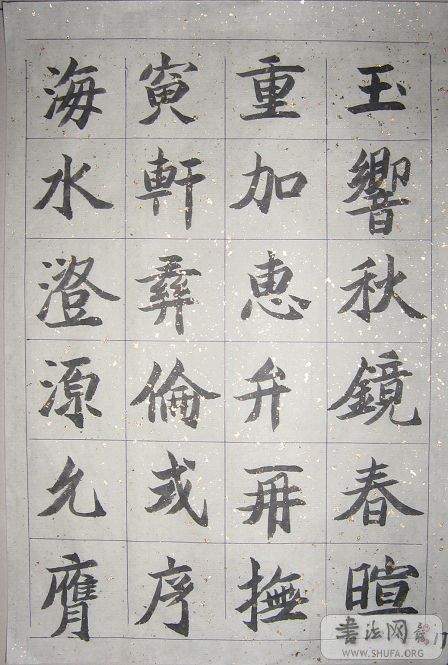 玉響秋鏡春暄
重加惠弁再撫
寅軒彝倫或序
海水澄源允膺
书法网
WWW.SHUFA.ORG
17